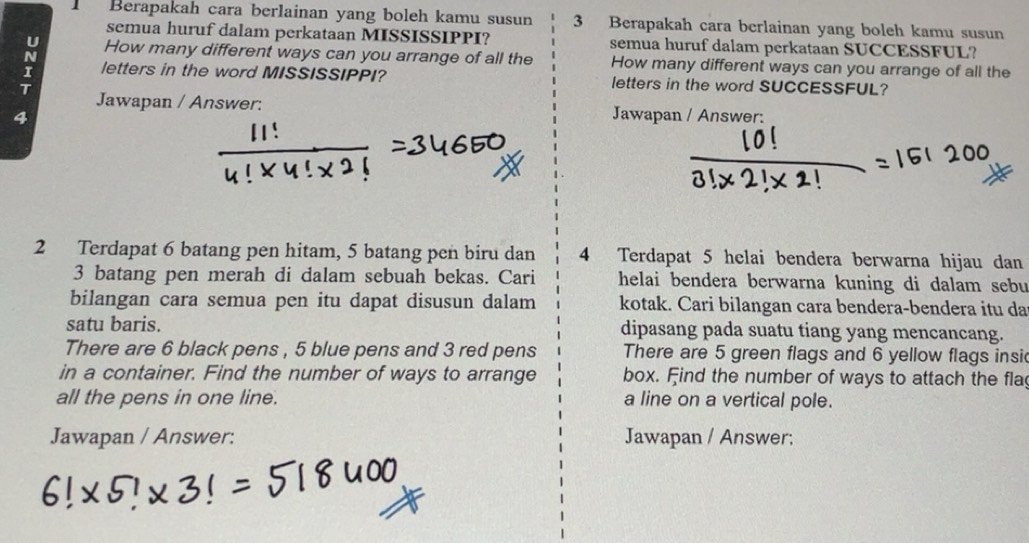 UNIT
4
1 Berapakah cara berlainan yang boleh kamu susun
semua huruf dalam perkataan MISSISSIPPI?
How many different ways can you arrange of all the
letters in the word MISSISSIPPI?
Jawapan / Answer:
11!
4! × 4! × 2!
= 34650
2 Terdapat 6 batang pen hitam, 5 batang pen biru dan
3 batang pen merah di dalam sebuah bekas. Cari
bilangan cara semua pen itu dapat disusun dalam
satu baris.
There are 6 black pens , 5 blue pens and 3 red pens
in a container. Find the number of ways to arrange
all the pens in one line.
Jawapan / Answer:
6! × 5! × 3! = 518400
3 Berapakah cara berlainan yang boleh kamu susun
semua huruf dalam perkataan SUCCESSFUL?
How many different ways can you arrange of all the
letters in the word SUCCESSFUL?
Jawapan / Answer:
10!
3! × 2! × 2!
= 151 200
4 Terdapat 5 helai bendera berwarna hijau dan
helai bendera berwarna kuning di dalam sebu
kotak. Cari bilangan cara bendera-bendera itu da
dipasang pada suatu tiang yang mencancang.
There are 5 green flags and 6 yellow flags insid
box. Find the number of ways to attach the flag
a line on a vertical pole.
Jawapan / Answer: